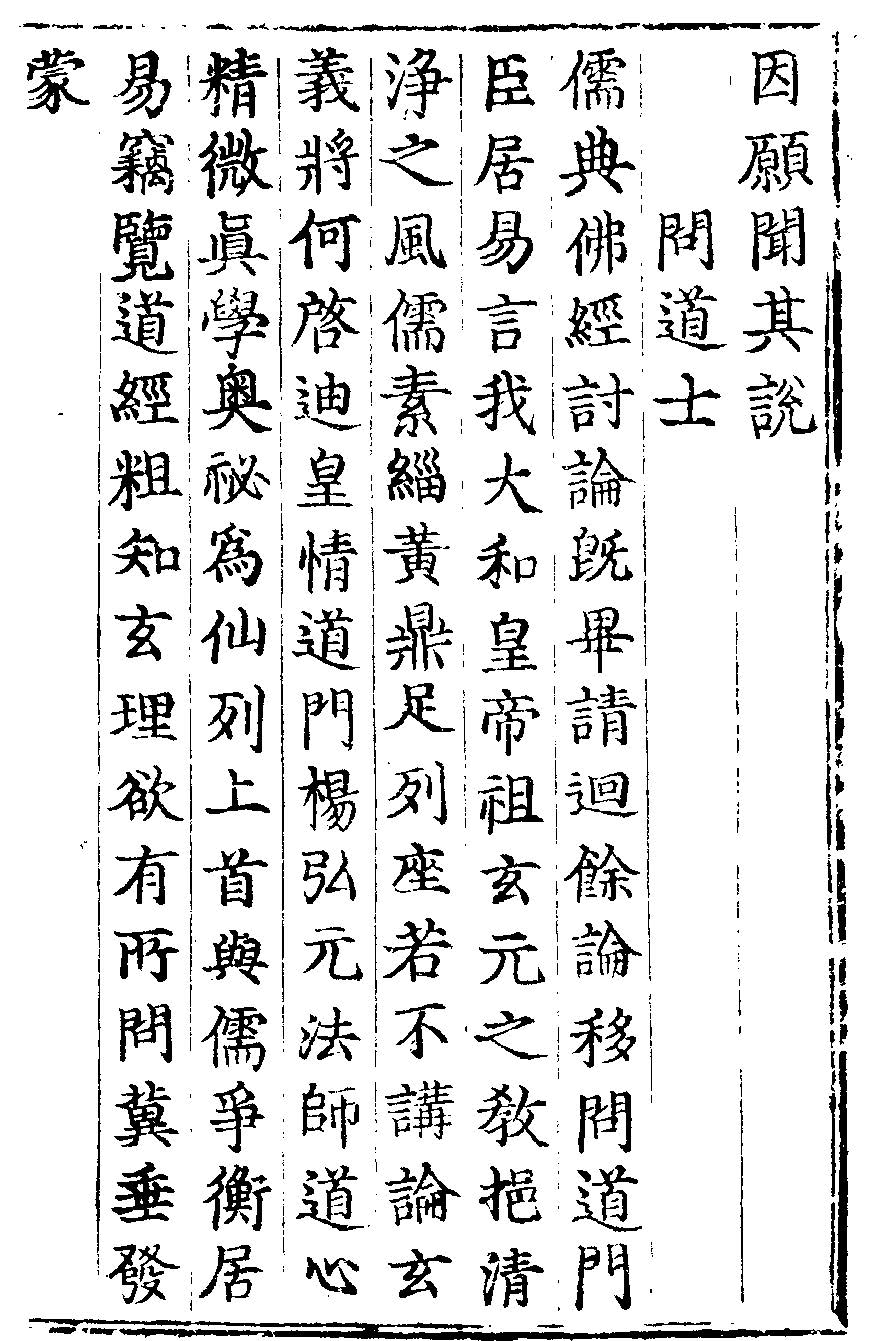 因願聞其說
問道士
儒典佛經討論旣畢請迴餘論移問道門
臣居易言我大和皇帝祖玄元之敎挹清
浄之風儒素緇黃鼎足列座若不講論玄
義將何啓迪皇情道門楊弘元法師道心
精微眞學奧祕爲仙列上首與儒爭衡居
易竊覽道經粗知玄理欲有所問冀垂發
蒙